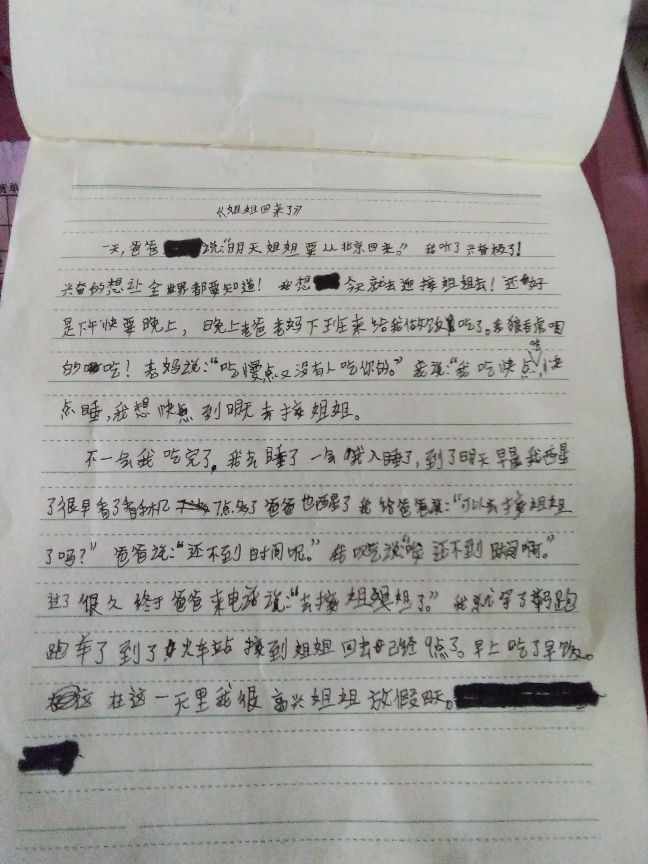 《姐姐回来了》
一天,爸爸说:“明天姐姐要从北京回来。” 我听了兴奋极了!
兴奋的想让全世界都要知道! 我想今天就去迎接姐姐去! 还好
是下午快要晚上, 晚上老爸老妈下班来给我做饭吃了。我狼吞虎咽
的吃! 老妈说:“吃慢点又没有人吃你的。” 我说:“我吃快点,快
点睡,我想快点到明天去接姐姐。
不一会我吃完了,我去睡了一会我入睡了,到了明天早晨我醒
了很早看了看手机 7点多了爸爸也醒了我给爸爸说:“可以去接姐姐
了吗?” 爸爸说:“还不到时间呢。” 我说“还不到时间啊。”
过了很久终于爸爸来电话说:“去接姐姐了。” 我就穿了鞋跑
跑车了到了火车站接到姐姐回去已经9点了。早上吃了早饭。
在这一天里我很高兴姐姐放假四天。